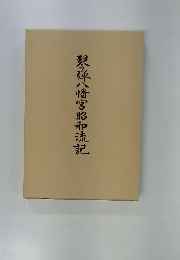 琴弾八幡宮昭和流記